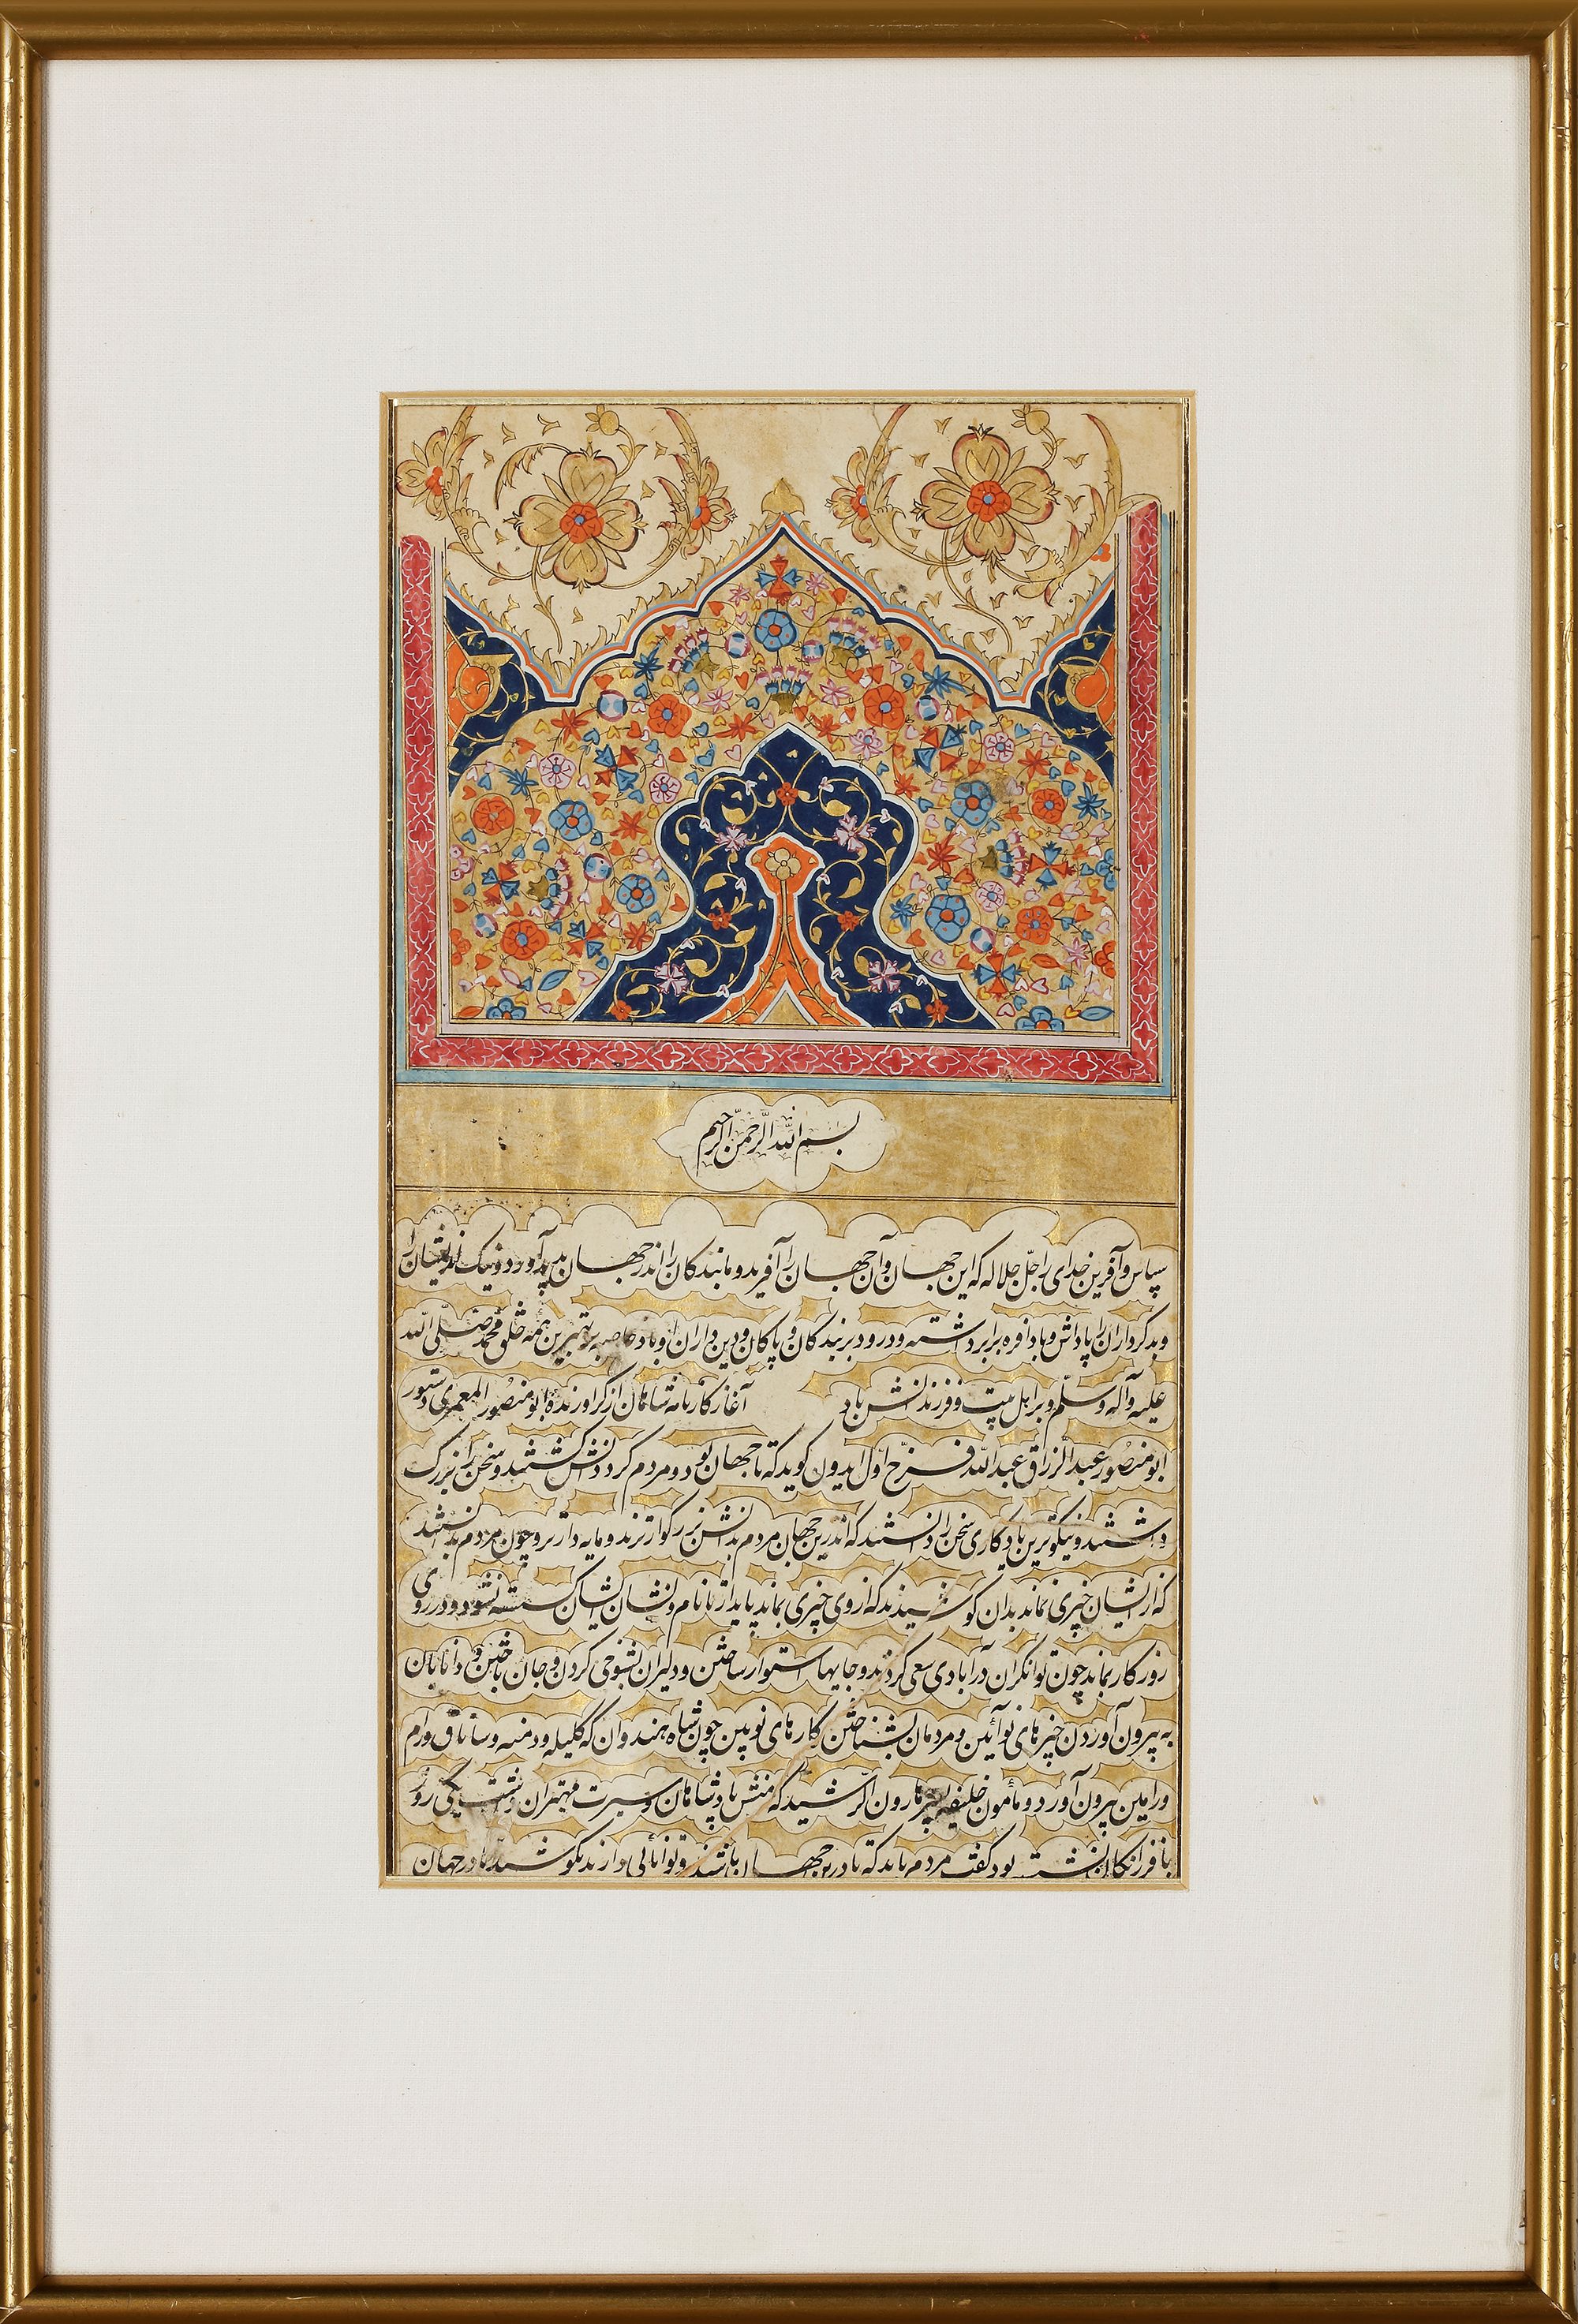 بسم الله الرحمن الرحیم
سپاس و آفرین خدای را جل جلاله که این جهان و آن جهان را آفرید و ما بندکان را اندر جهان پدید آورد و نیک اندیشان را
و بدکرداران را پاداش و بادافره برابر داشته و درود بر بندکان و پاکان و دین داران او باد خاصه بر بهترین همه خلق محمد صلی الله
علیه وآله وسلم و بر اهل بیت و فرزندانش باد آغاز کارنامه شاهان از کرد آورنده ابو منصور المعمری دستور
ابو منصور عبدالرزاق عبدالله فرخ اول ایدون کوید که تا جهان بود و مردم کرد دانش کشتند و سخن را بزرک
داشتند و نیکوترین یادکاری سخن را دانستند که اندرین جهان مردم بدانش بزرکوارترند و مایه دارتر و چون مردم بدانستند
که از ایشان چیزی نماند بدان کوشیدند که از وی چیزی بماند پایدار تا نام و نشان ایشان کسسته نشود و در روی
روزکار بماند چون توانکران در آبادی سعی کردند و جایها استوار ساختن و دلیران بشوخی کردن و جان باختن و دانایان
به بیرون آوردن چیزهای نوآئین و مردمان بشناختن کارهای نوین چون شاه هندوان که کلیله و دمنه و ساناق و رام
و رامین بیرون آورد و مأمون خلیفه پسر هارون الرشید که منش پادشاهان و سیرت مهتران داشت یکی روز
با فرزانکان نشسته بود کفت مردم باید که تا درین جهان باشند و توانائی دارند بکوشند تا در جهان